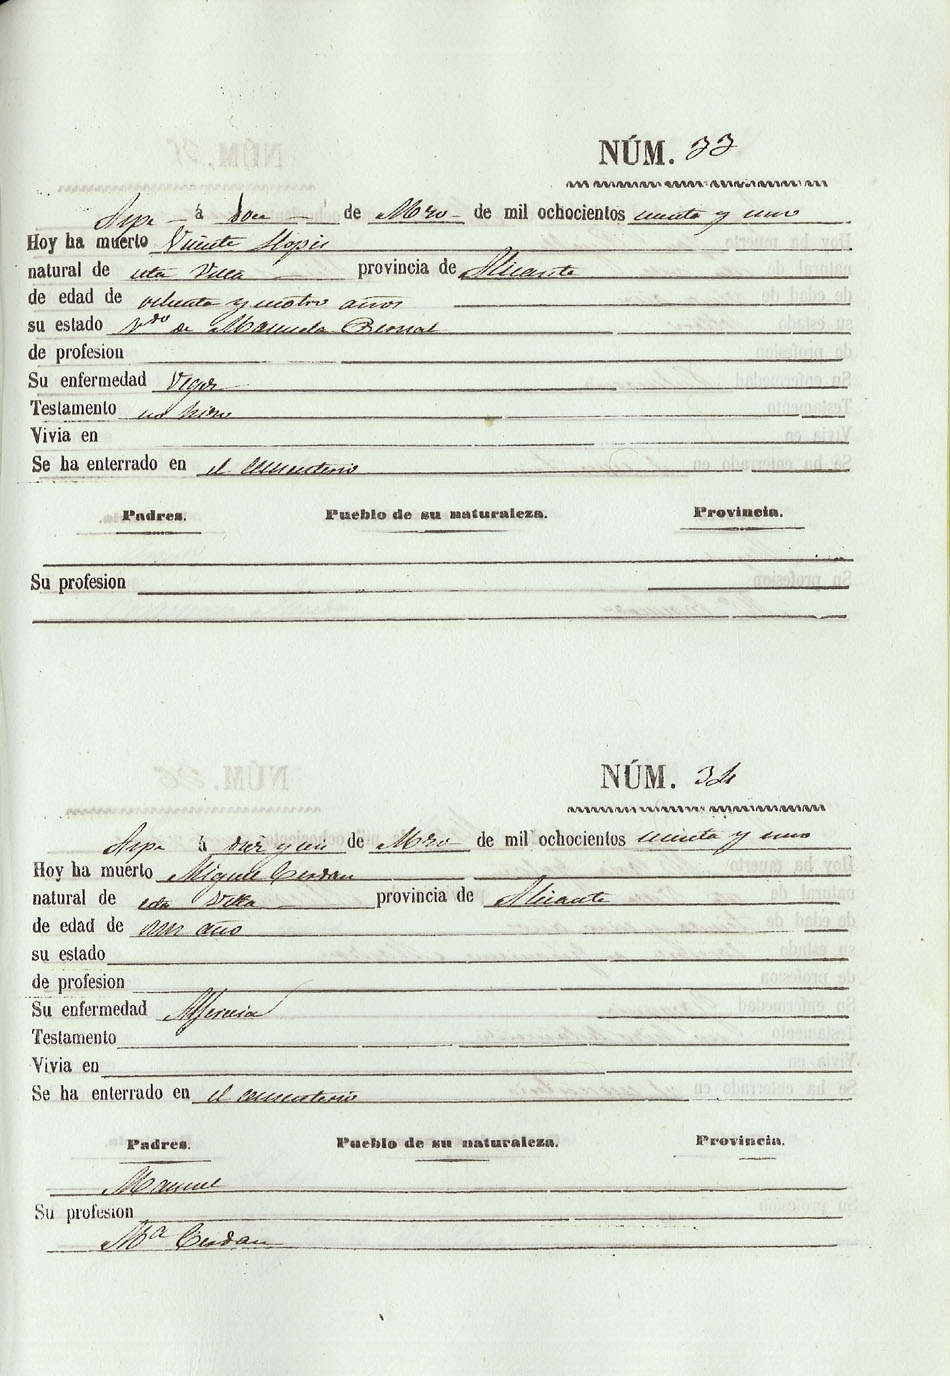 NÚM. 33
Aspe á Doce de Mzo de mil ochocientos y uno
Hoy ha muerto Vicente Llopis
natural de esta Villa provincia de Alicante
de edad de ochenta y cuatro años
su estado Vdo de Manuela Bernal
de profesion
Su enfermedad Vejez
Testamento no hizo
Vivia en
Se ha enterrado en el cementerio
Padres. Pueblo de su naturaleza. Provincia.
Su profesion
NÚM. 34
Aspe á diez y seis de Mzo de mil ochocientos y uno
Hoy ha muerto Miguel Cerdan
natural de esta Villa provincia de Alicante
de edad de un año
su estado
de profesion
Su enfermedad
Testamento
Vivia en
Se ha enterrado en el cementerio
Padres. Pueblo de su naturaleza. Provincia.
Manuel
Su profesion
Ma Cerdan